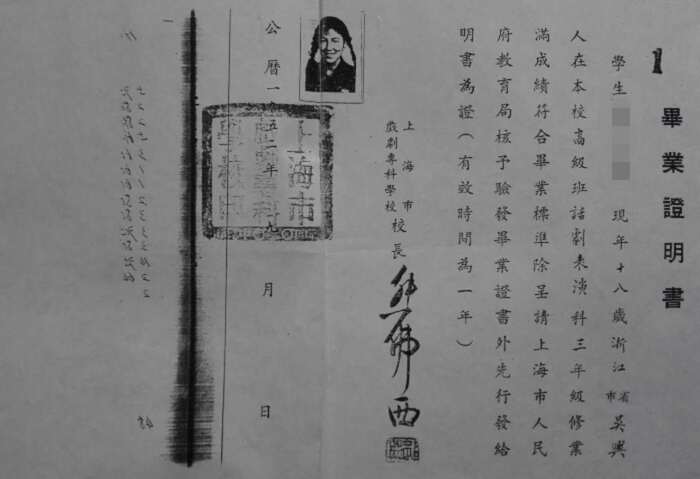 畢業證明書
學生 現年十八歲浙江省市吳興
人在本校高級班話劇表演科三年級修業
滿成績符合畢業標準除呈請上海市人民
府教育局核予驗發畢業證書外先行發給
明書為證（有效時間為一年）
上海市
戲劇專科學校
校長 熊佛西
公曆一九五二年九月 日